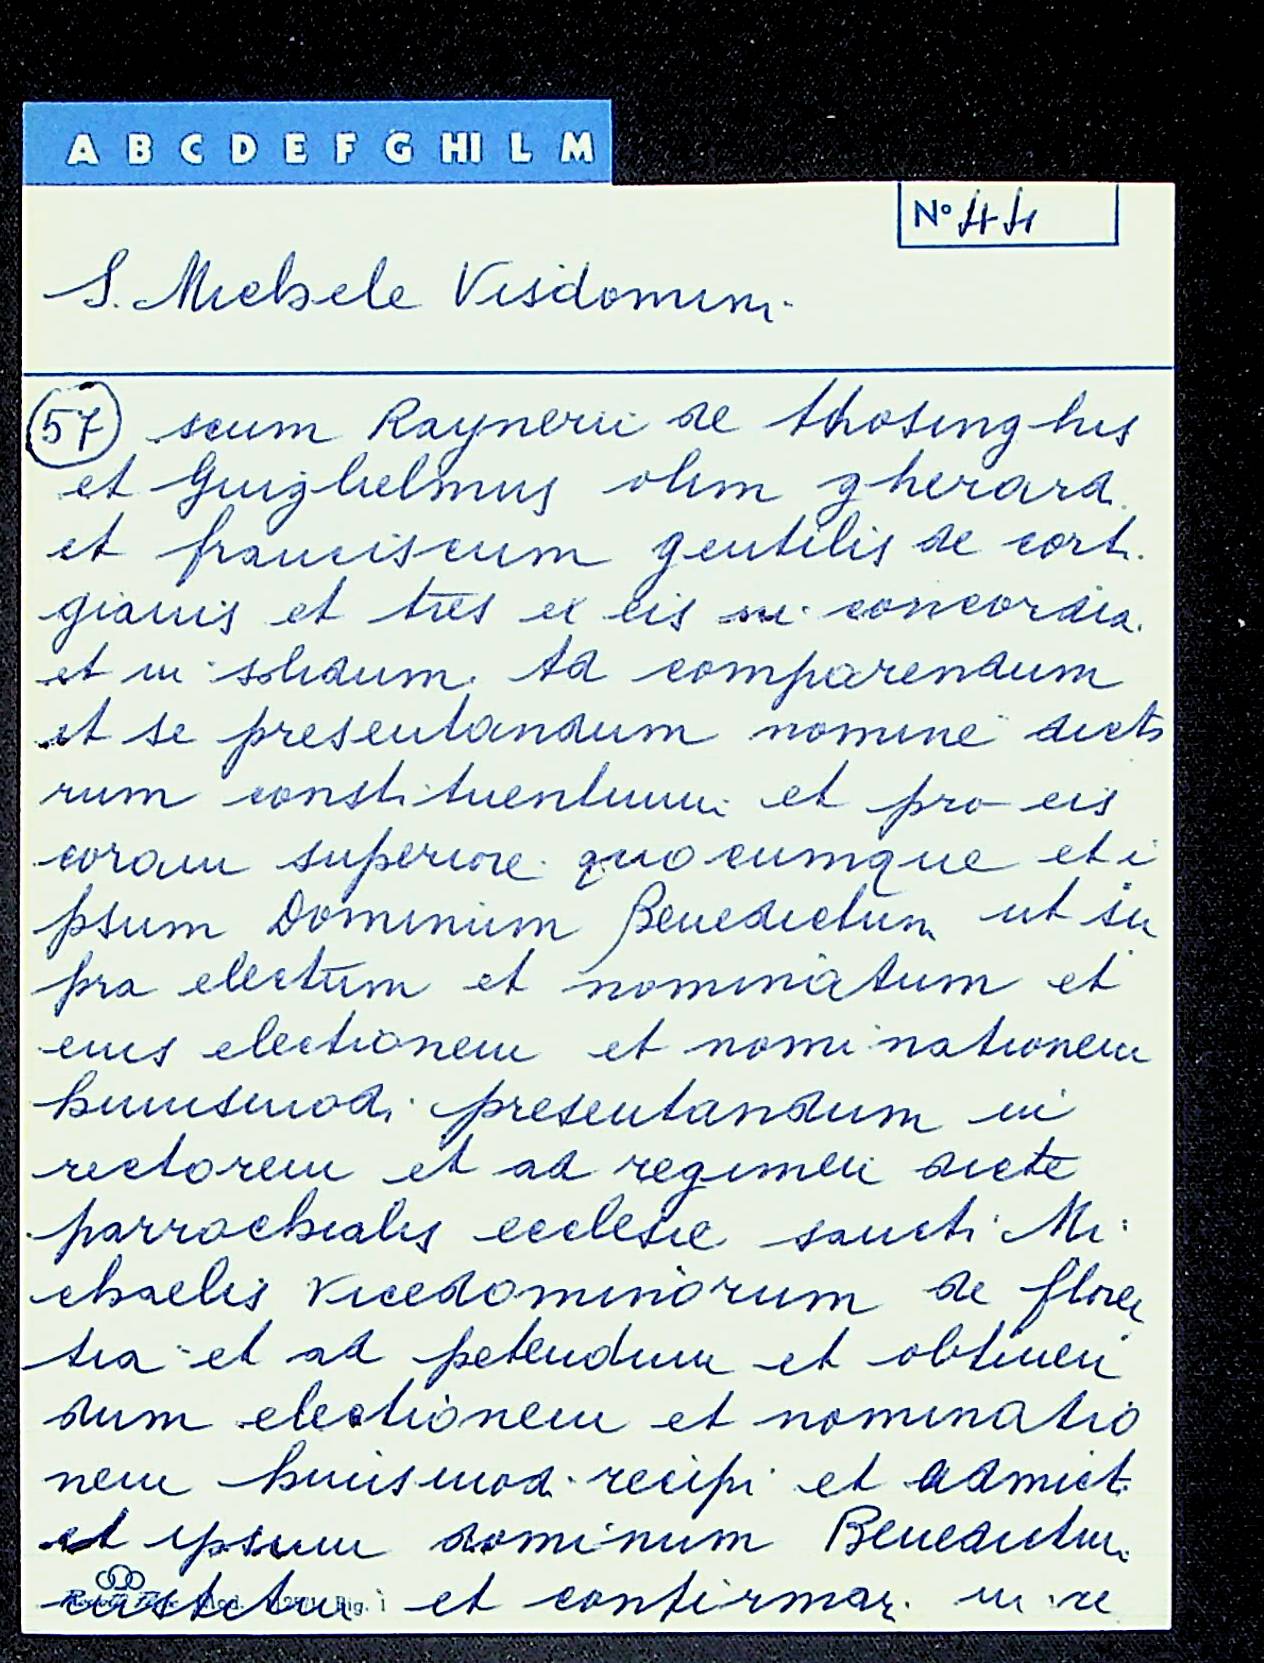 A B C D E F G HI L M
Nº 44
S. Michele Visdomini
57 scum Raynerii de thosinghis
et Guiglielmus olim gherard.
et franciscum gentilis de corti
gianis et tres ex eis in concordia
et in solidum. Ad comparendum
et se presentandum nomine dicto
rum constituentium et pro eis
coram superiore quocumque et i
psum Dominum Benedictum ut su
pra electum et nominatum et
eius electionem et nominationem
huiusmodi presentandum in
rectorem et ad regimen dicte
parrochialis ecclesie sancti Mi
chaelis Vicedominorum de floren
tia et ad petendum et obtinen
dum electionem et nominatio
nem huiusmodi recipi et admicti
et ipsum dominum Benedictum
et confirmari in re